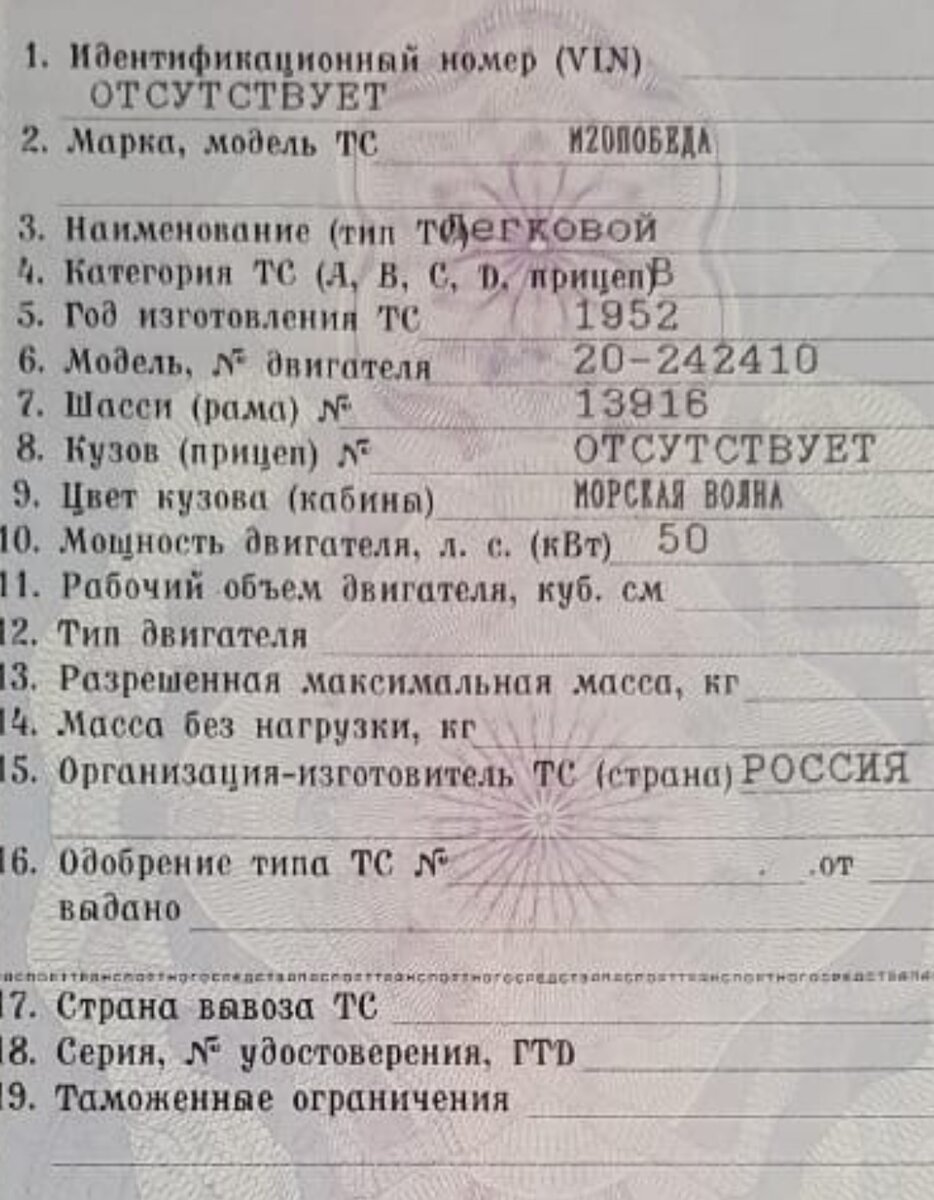 1. Идентификационный номер (VIN)
ОТСУТСТВУЕТ
2. Марка, модель ТС М20ПОБЕДА
3. Наименование (тип ТС) Легковой
4. Категория ТС (A, B, C, D, прицеп) B
5. Год изготовления ТС 1952
6. Модель, № двигателя 20-242410
7. Шасси (рама) № 13916
8. Кузов (прицеп) № ОТСУТСТВУЕТ
9. Цвет кузова (кабины) МОРСКАЯ ВОЛНА
10. Мощность двигателя, л. с. (кВт) 50
11. Рабочий объем двигателя, куб. см
12. Тип двигателя
13. Разрешенная максимальная масса, кг
14. Масса без нагрузки, кг
15. Организация-изготовитель ТС (страна) РОССИЯ
16. Одобрение типа ТС № . .от
выдано
17. Страна вывоза ТС
18. Серия, № удостоверения, ГТD
19. Таможенные ограничения